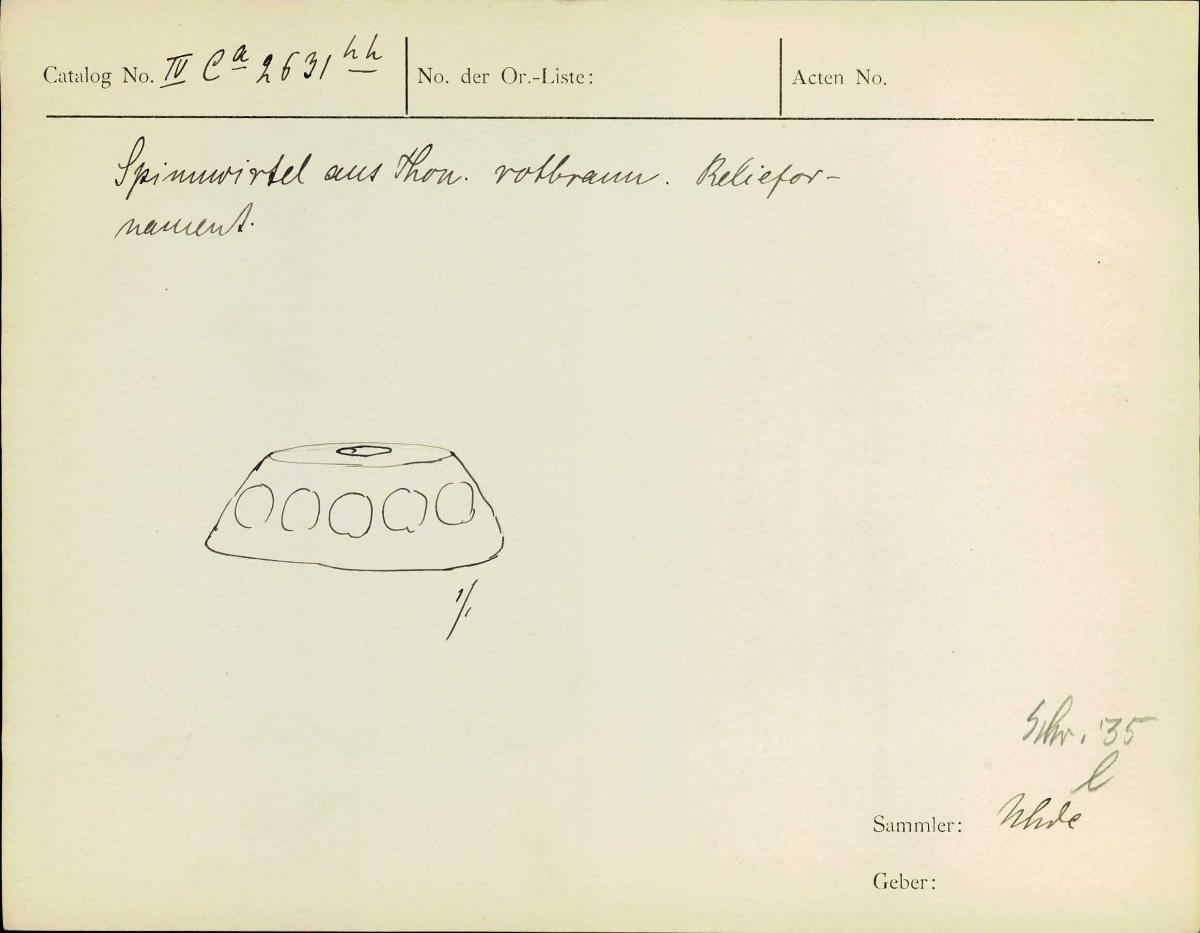 Catalog No. IV Ca 2631 hh
No. der Or.-Liste:
Acten No.
Spinnwirtel aus Thon. rotbraun. Reliefor-
nament.
1/1
Schr. '35
l
Sammler: Uhde
Geber: